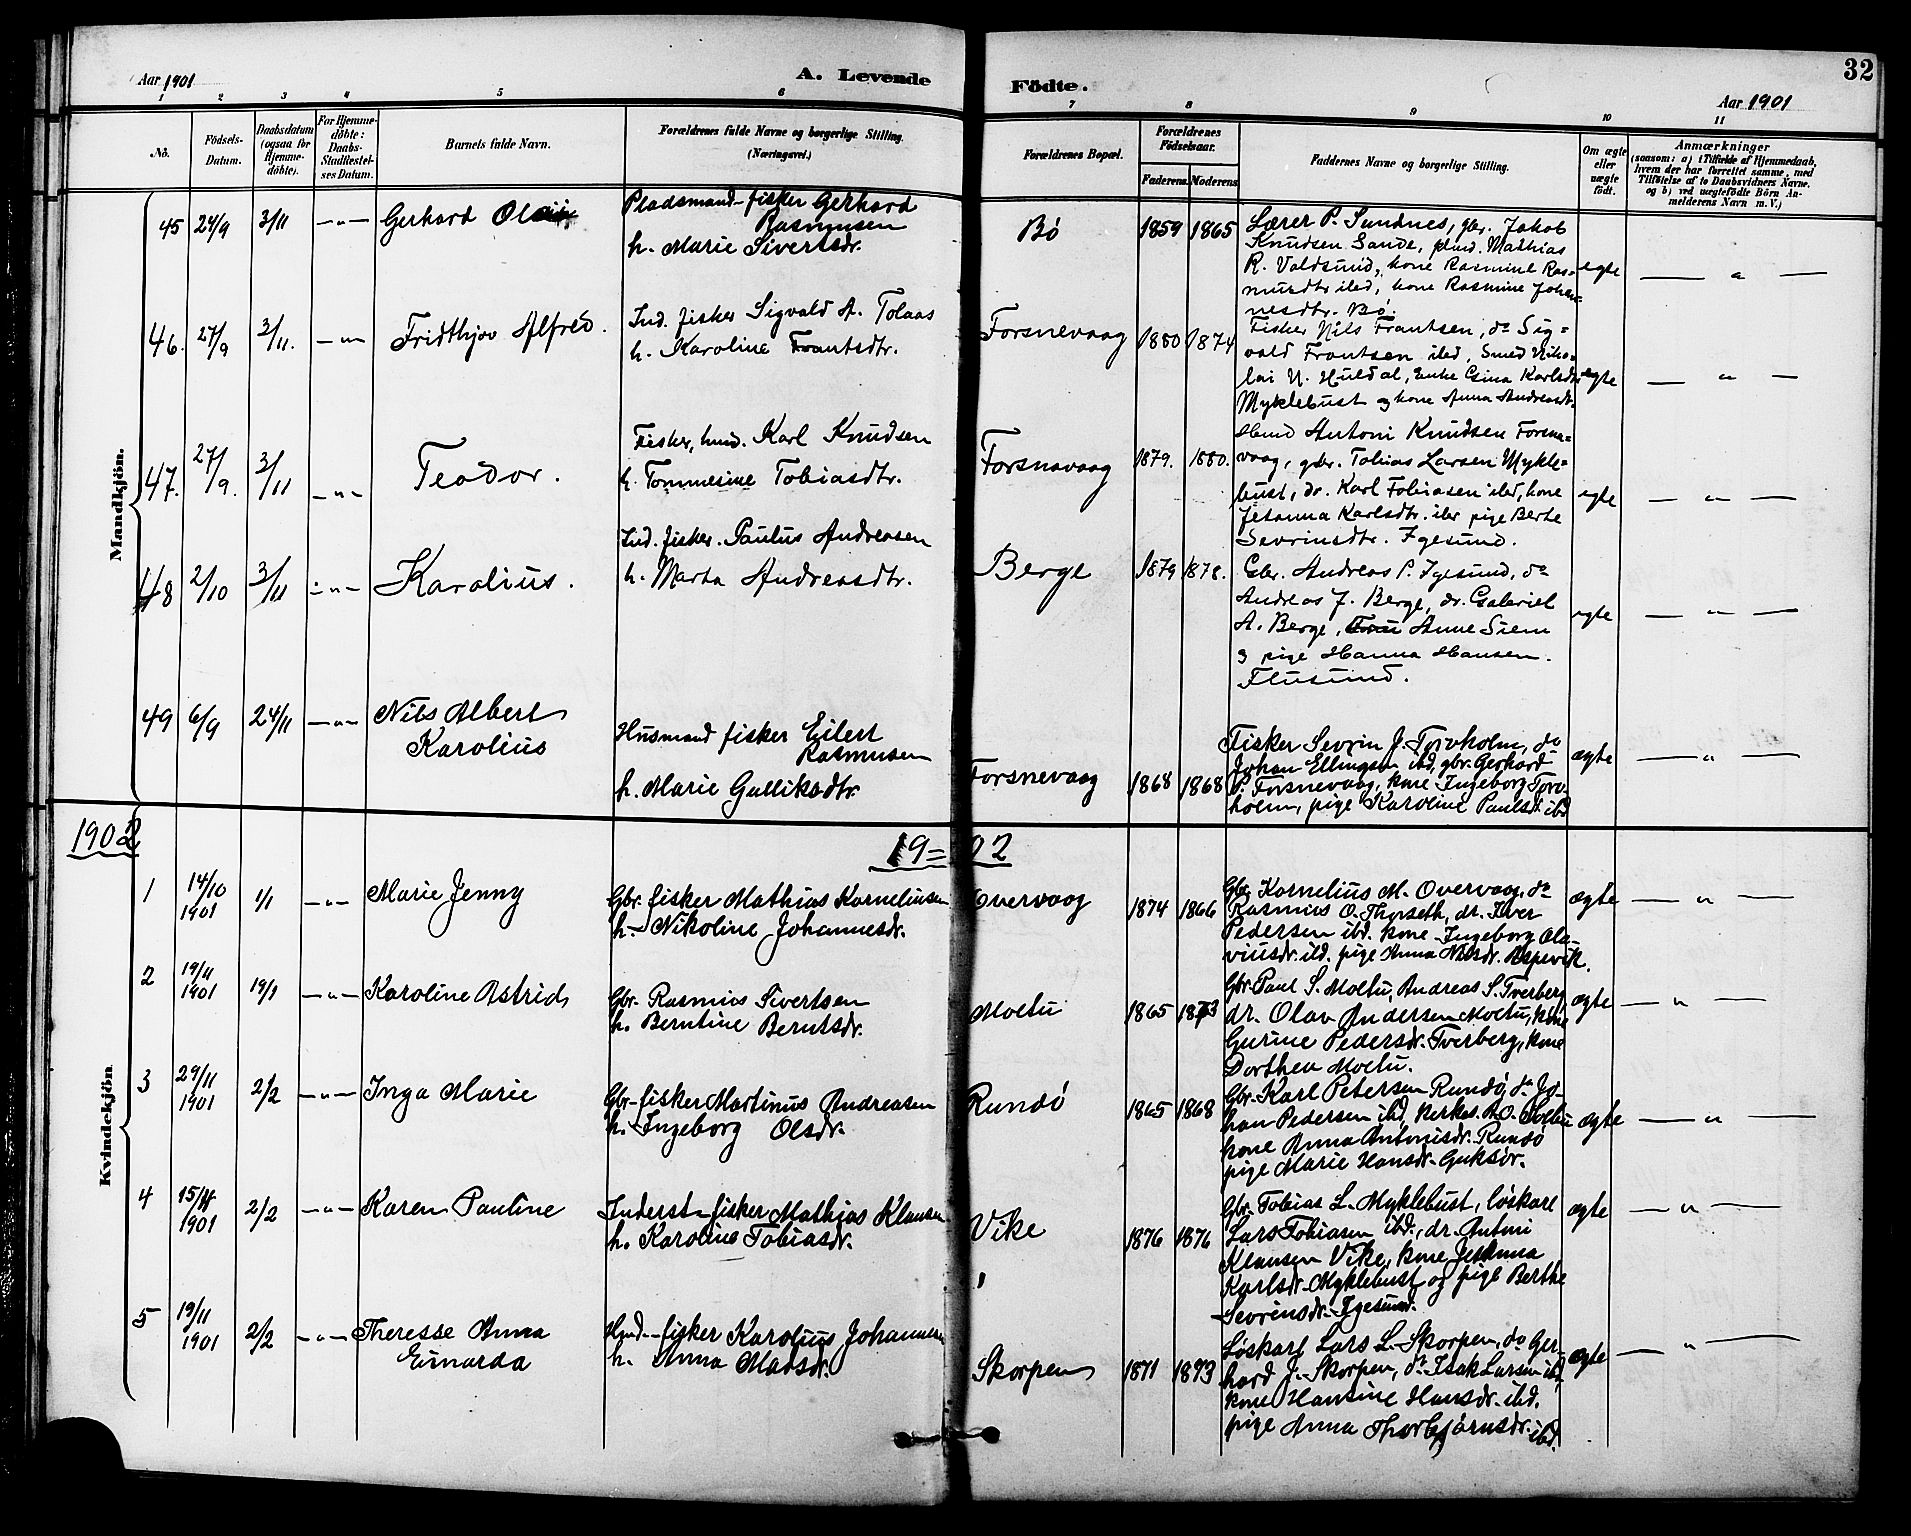 Aar 1901
A. Levende Födte.
32
Aar 1901
1 2 3 4 5 6 7 8 9 10 11
No.
Födsels-Datum.
Daabsdatum (ogsaa for Hjemmedöbte).
For Hjemmedöbte: Daabs-Stadfæstelses Datum.
Barnets fulde Navn.
Forældrenes fulde Navne og borgerlige Stilling.
(Næringsvei.)
Forældrenes Bopæl.
Forældrenes Födselsaar.
Faderens. Moderens.
Faddernes Navne og borgerlige Stilling.
Om ægte eller uægte födt.
Anmærkninger
(saasom: a) i Tilfælde af Hjemmedaab, hvem der har forrettet samme, med Tilføielse af to Daabsvidners Navne, og b) ved uægtefödte Börn Anmelderens Navn m. V.)
Mandkjön.
45 24/9 3/11 -"- Gerhard
Pladsmand-fisker Gerhard
Rasmusen
h. Marie Sivertsdr.
Bø 1859 1865
Lærer P. Sundnes, gbr. Jakob
Knudsen Sande, plmd. Mathias
R. Voldsund, kone Rasmine Ras-
musdtr ibd, kone Rasmine Johan-
nesdtr. Bø.
egte — " —
46. 27/9 3/11. -"- Fridthjov Alfred.
Ind. fisker Sigvald A. Tolaas
h. Karoline Frantsdtr.
Forsnevaag 1880 1874
Fisker Nils Frantsen, do Sig=
vald Frantsen ibd, Smed Niko-
lai N. Huldal, Enke Gina Karlsdtr
Myklebust og kone Anna Andreasdt.
egte — " —
47. 27/9. 3/11 -"- Teodor.
Fisker, husd. Karl Knudsen
h. Tommesine Tobiasdtr.
Forsnavaag 1879. 1880.
Husd Antoni Knudsen Forsna=
vaag, gbr. Tobias Larsen Mykle=
bust, dr. Karl Tobiasen ibd, kone
Jetanna Karlsdtr. ibd pige Berte
Sevrinsdtr. Igesund.
egte — " —
48 2/10 3/11 -"- Karolius.
Ind. fisker. Paulus Andreasen
h. Marta Andreasdtr.
Berge 1879 1878.
Gbr. Andreas P. Igesund, do
Andreas J. Berge, dr. Gabriel
A. Berge, Anne Siem
3 pige Hanna Hansen.
Flusund.
egte — " —
49 6/9 24/11 -"- Nils Albert
Karolius
Husmand fisker Eilert
Rasmusen
h. Marie Gulliksdtr.
Forsnevaag 1868 1868
Fisker Sevrin J. Torvholm, do
Johan Ellingsen ibd, gbr. Gerhard
P. Forsnevaag, kone Ingeborg Torv-
holm, pige Karoline Paulsdr ibd
ægte — " —
1902 19=02
Kvindekjön
1 14/10 1901 1/1 -"- Marie Jenny
Gbr. fisker Mathias Kornelius​en
h. Nikoline Johannesdr.
Overvaag 1874 1866
Gbr Kornelius M. Overvaag, do
Rasmus O. Thorseth, dr. Iver
Pedersen ibd. kone Ingeborg Ola-
viusdr. ibd. pige Anna Nilsdr. Aspevik.
ægte — " —
2 19/11 1901 19/1 -"- Karoline Astrid
Gbr. Rasmus Sivertsen
h. Berntine Berntsdr.
Moltu 1865 1873
Gbr. Paul S. Moltu, Andreas S. Tverberg
dr. Olav Andersen Moltu, kone
Gurine Pedersdr. Tverberg, kone
Dorthea Moltu.
ægte — " —
3 29/11 1901 2/2 -"- Inga Marie
Gbr-fisker Martinus Andreasen
h. Ingeborg Olsdr.
Rundö 1865 1868
Gbr. Karl Petersen Rundö, do Jo-
han Pedersen ibd, Kirkes. A. O.
kone Anna Antonisdr. Rundö
pige Marie Hansdr.
ægte — " —
4 15/11 1901 2/2 -"- Karen Pauline
Inderst-fisker Mathias Klausen
h. Karoline Tobiasdr.
Vike 1876 1876
Gbr. Tobias L. Myklebust, löskarl
Lars Tobiasen ibd., dr. Antoni
Klausen Vike, kone Jetanna
Karlsdr. Myklebust og pige Berthe
Sevrinsdr. Igesund.
ægte — " —
5 19/11 1901 2/2 -"- Theresse Anna
Einarda
Hmd.-fisker Karolius Johannesen
h. Anna Madsdr.
Skorpen 1871 1873
Löskarl Lars L. Skorpen, do Ger-
hard J. Skorpen, do Isak Larsen ibd,
kone Hansine Hansdr. ibd.
pige Anna Thorbjörnsdr. ibd.
ægte — " —